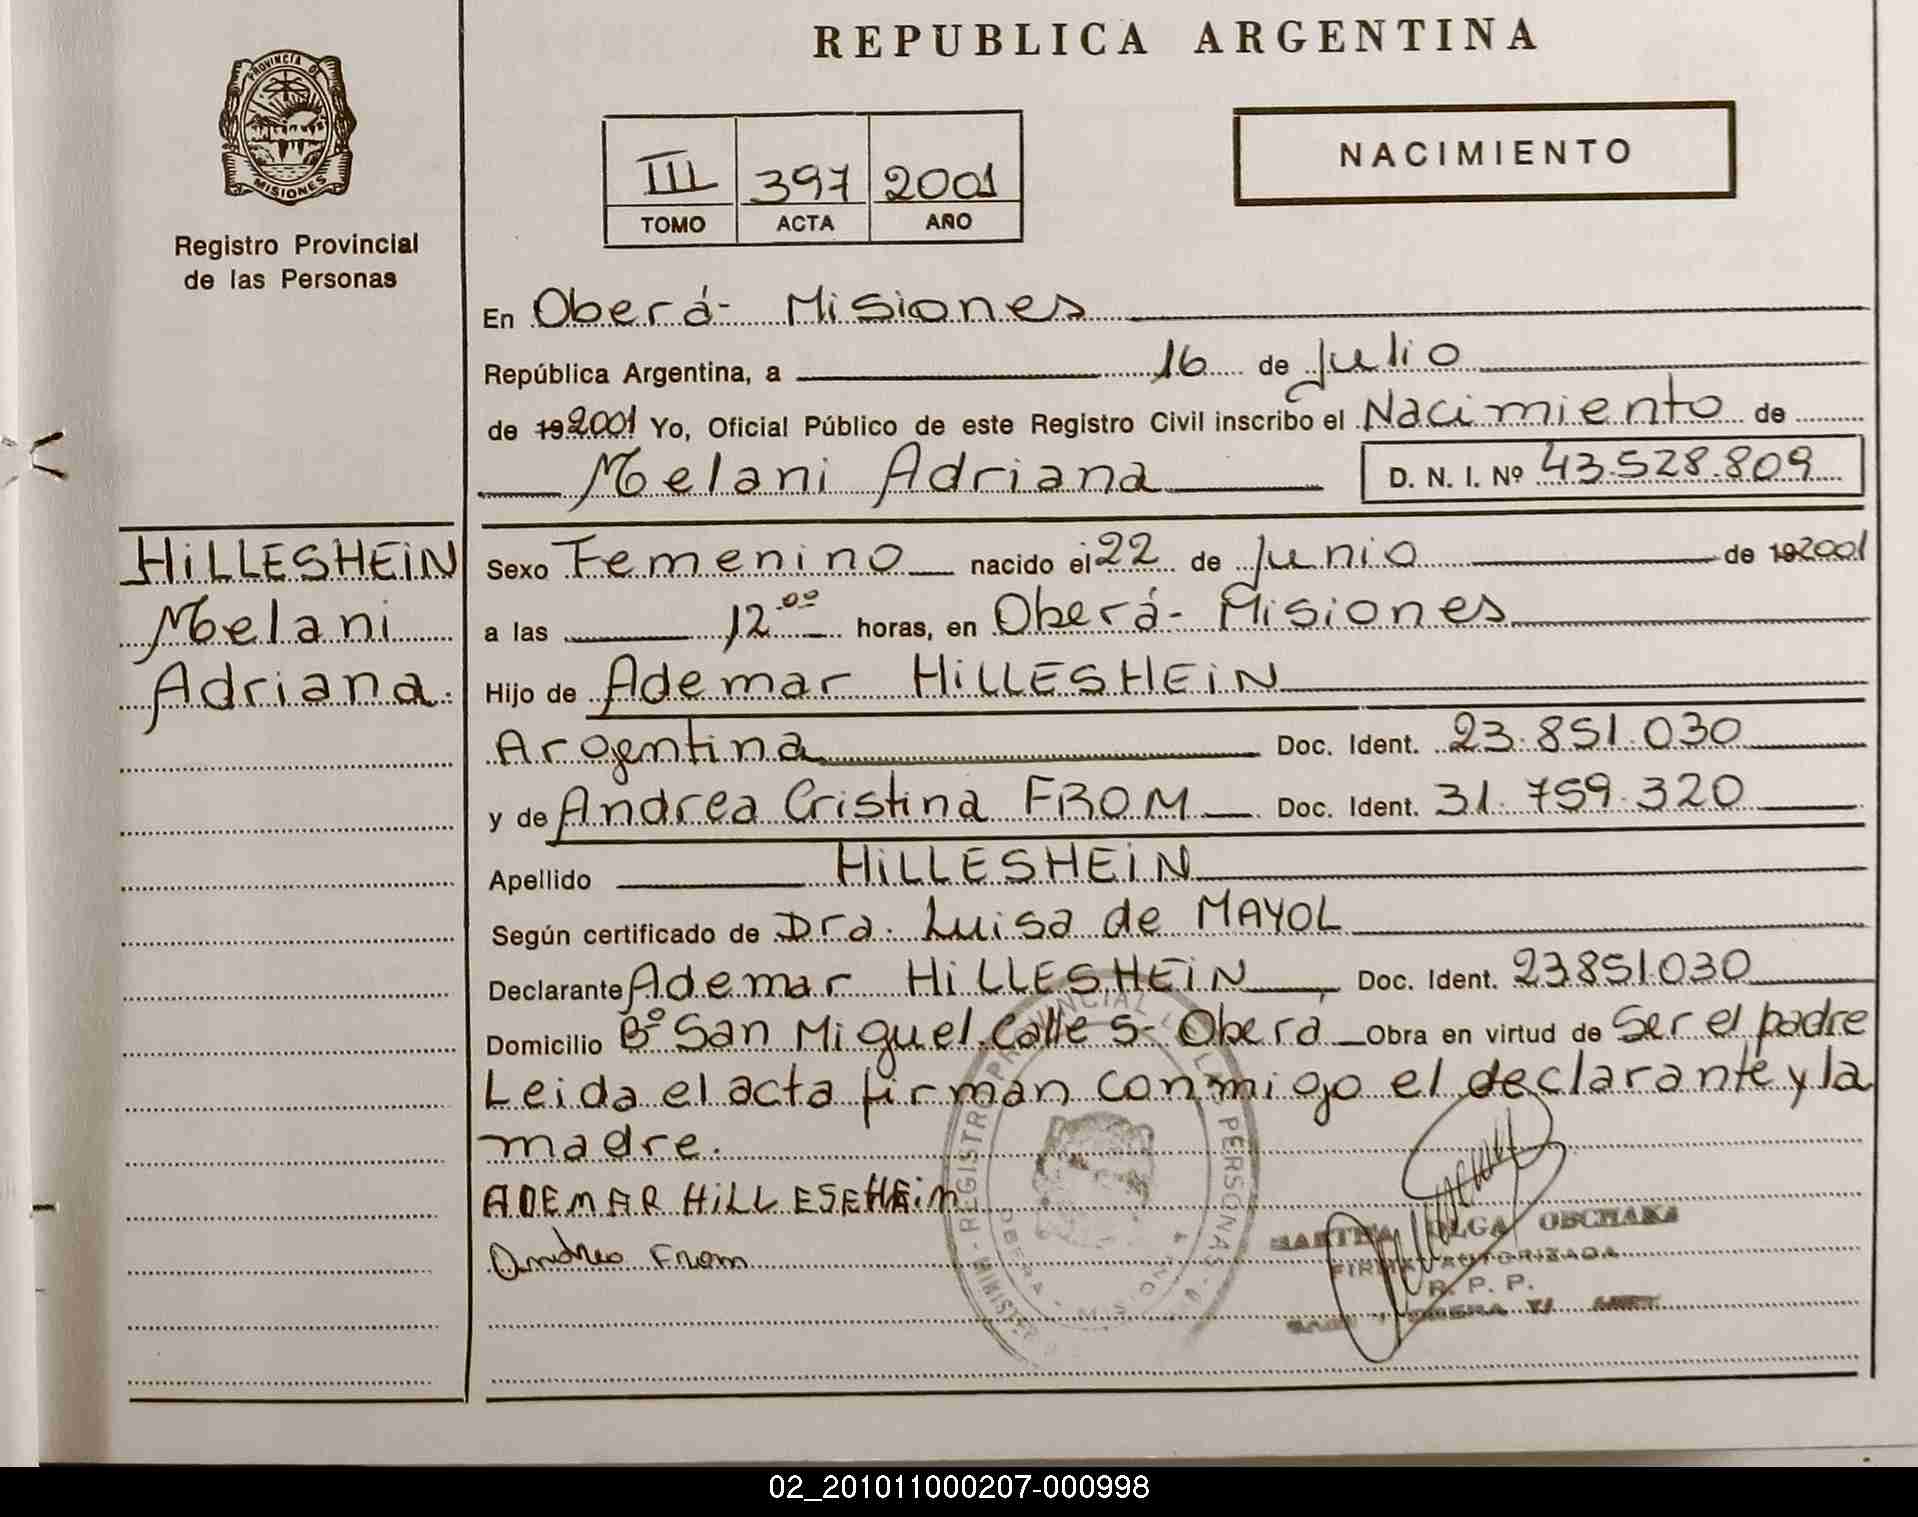 REPUBLICA ARGENTINA
PROVINCIA DE
MISIONES
Registro Provincial
de las Personas
III 397 2001
TOMO ACTA AÑO
NACIMIENTO
En Oberá- Misiones
República Argentina, a 16 de Julio
de 19 2001 Yo, Oficial Público de este Registro Civil inscribo el Nacimiento de
Melani Adriana D. N. I. Nº 43.528.809
HiLLESHEiN
Melani
Adriana.
Sexo Femenino nacido el 22 de Junio de 19 2001
a las 12.00 horas, en Oberá- Misiones
Hijo de Ademar HiLLESHEiN
Argentina Doc. Ident. 23.851.030
y de Andrea Cristina FROM Doc. Ident. 31.759.320
Apellido HiLLESHEiN
Según certificado de Dra. Luisa de MAYOL
Declarante Ademar HiLLESHEiN, Doc. Ident. 23851.030
Domicilio Bº San Miguel Calle S- Oberá Obra en virtud de Ser el padre
Leida el acta firman conmigo el declarante y la
madre.
ADEMAR HiLLESEHEiN
Andrea From
REGISTRO PROVINCIAL PERSONAS
OBERA - MISIONES
OLGA OBCHAKA
FIRMA AUTORIZADA
R. P. P.
02_201011000207-000998